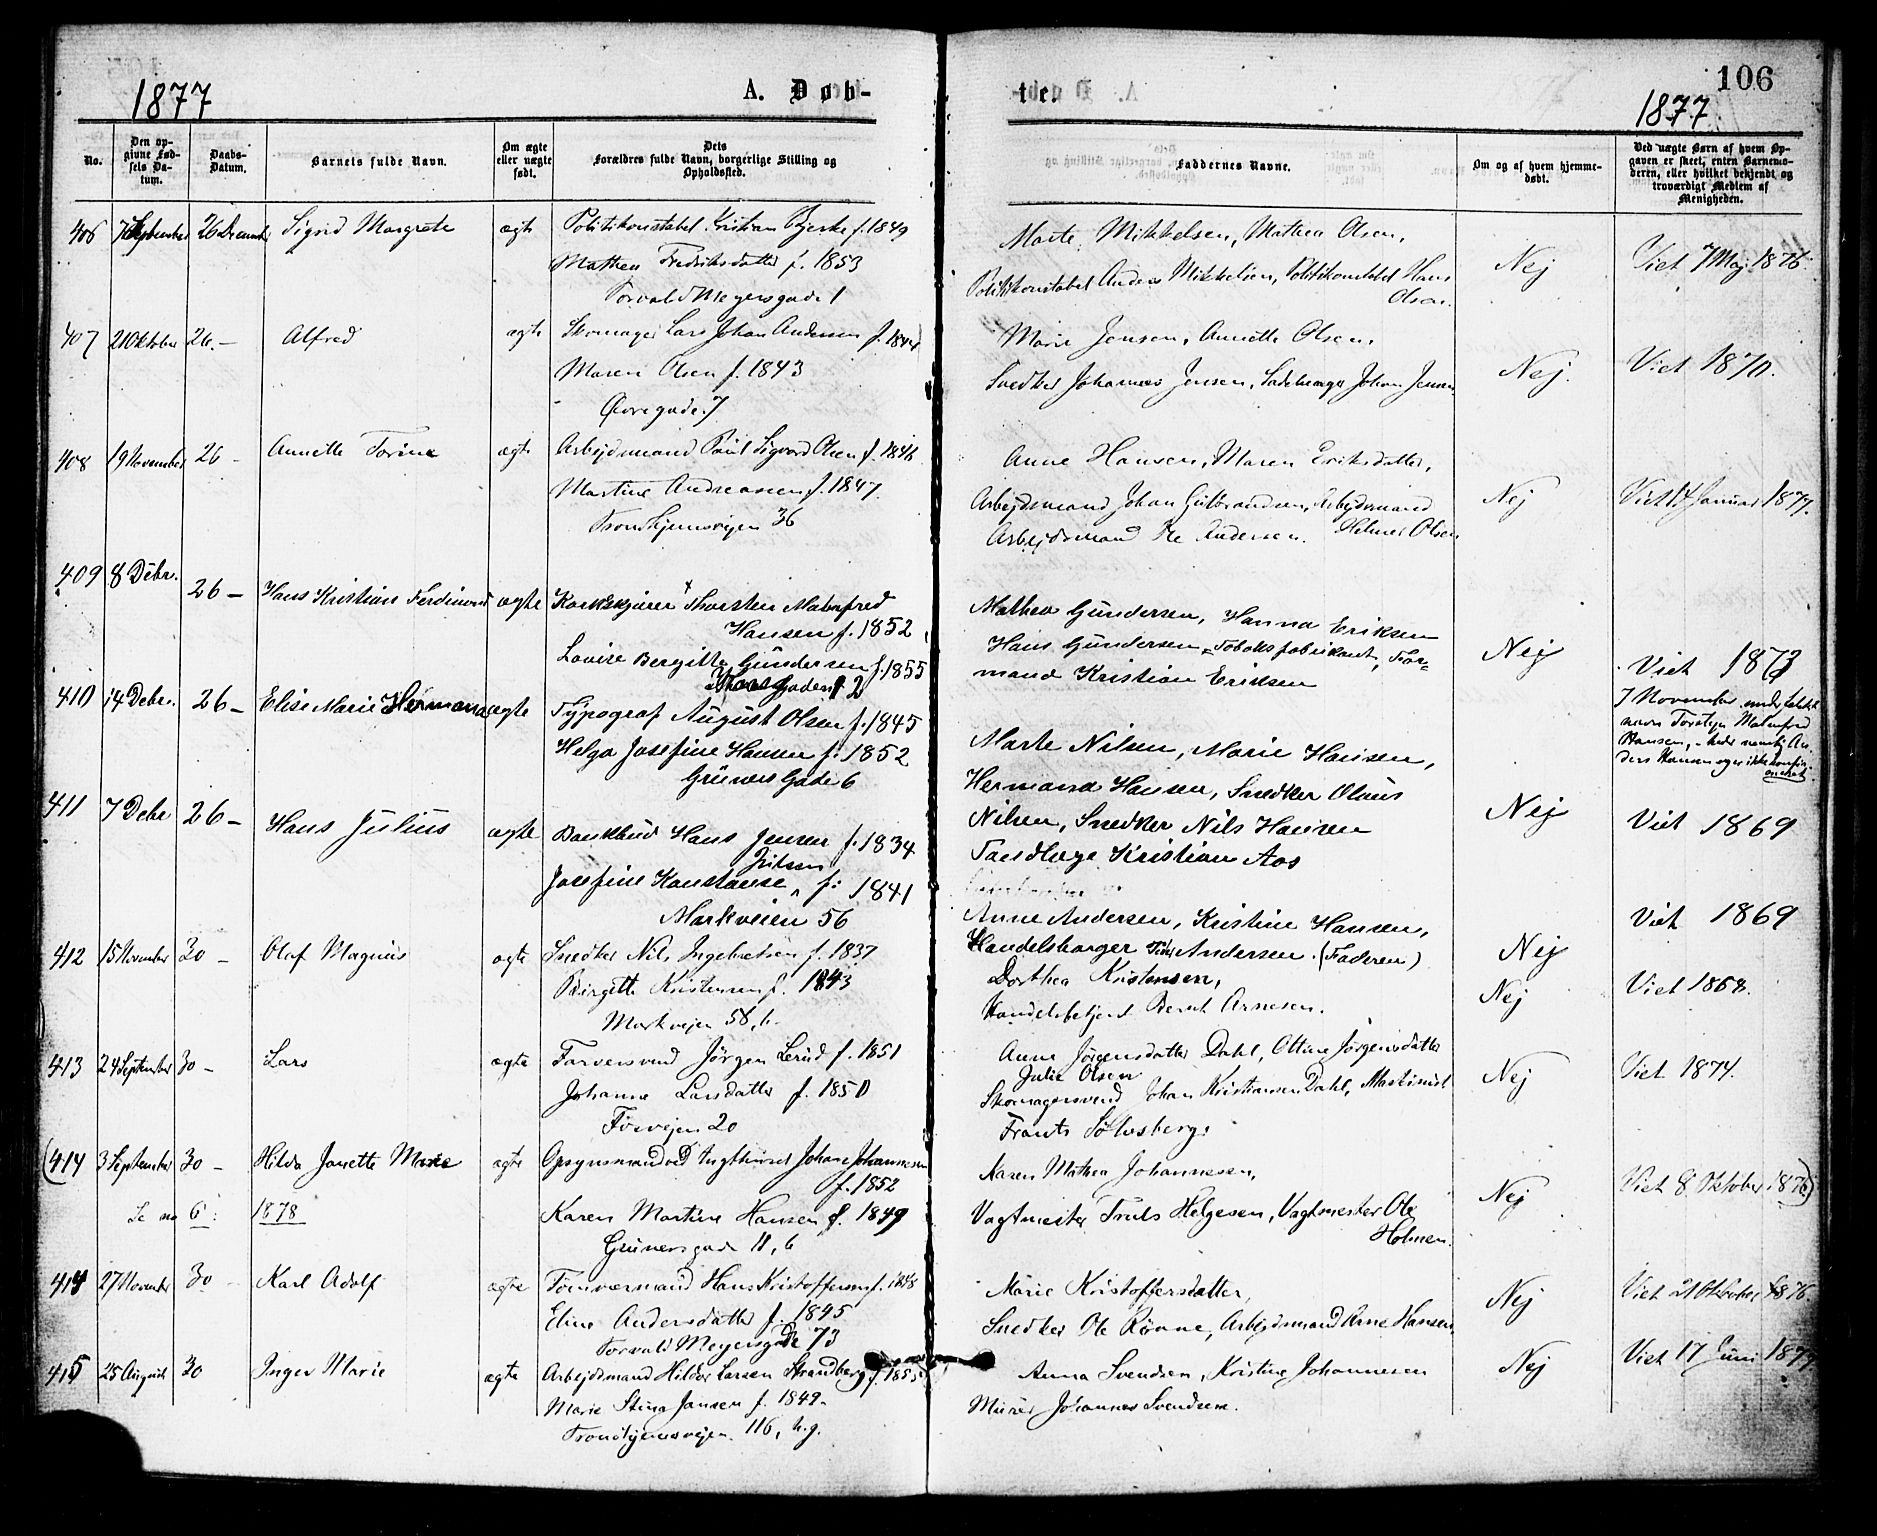 1877
A. Døb-
No.
Den op-
givne Fød-
sels Da-
tum.
Daabs-
Datum.
Barnets fulde Navn.
Om ægte
eller uægte
født.
Dets
Forældres fulde Navn, borgerlige Stilling og
Opholdssted.
406 7 September 26 December Sigrid Margrete ægte Politikonstabel Kristian Bjerke f. 1849
Mathea Fredriksdatter f. 1853
Torvald Meyersgade 1
407 2 Oktober 26.— Alfred ægte Skomager Lars Johan Andersen f.
Maren Olsen f. 1843
Øvregade 7
408 19 November 26 — Annette Torine ægte Arbejdsmand Paul Sigvard Olsen f.
Martine Andreasen f. 1847.
Trondhjemsvejen 36
409 8 Debr. 26 — Hans Kristian Ferdinand ægte Korkskjærer Thorsten Malmfred
Hansen f. 1852
Lovise Bergitte Gundersen f. 1855
410 14 Debr. 26 — Elise Marie Hermana ægte Typograf August Olsen f. 1845
Helga Josefine Hansen f. 1852
Grüners Gade 6
411 7 Debr 26 — Hans Julius ægte Bankbud Hans Jensen f. 1834
Josefine Konstanse f: 1841
Markveien 56
412 15 November 30 — Olaf Magnus ægte Snedker Nils Ingebretsen f. 1837
Birgitte Kristensen f. 1843
Markvejen 58, b.
413 24 September 30 — Lars ægte Farversvend Jörgen Lerud f. 1851
Johanne Larsdatter f. 1850
20
(414 3 September 30 — Hilda Janette Marie ægte Opsynsmand ved Johan Johannesen
f. 1852
Se no 6: 1878 Karen Martine Hansen f. 1849
Grunersgade 11, b
414 27 November 30 — Karl Adolf ægte Hans Kristoffersen f. 1848
Eline Andersdatter f. 1845
Torvald Meyersgade 73
415 25 August 30 Inger Marie ægte Arbejdsmand Hilder Larsen Strandberg f. 1855
Marie Stina Jansen f. 1849.
Trondhjemsvejen 116, h.g.
te.
106
1877
Faddernes Navne.
Om og af hvem hjemme-
døbt.
Ved uægte Børn af hvem Op-
gaven er skeet, enten Barnemo-
deren, eller hvilket bekjendt og
troværdigt Medlem af
Menigheden.
Marte Mikkelsen, Mathea Olsen,
Politikonstabel Anders Mikkelsen, Politikonstabel Hans
Olsen. Nej Viet 7 Maj 1876.
Marie Jensen, Annette Olsen,
Snedker Johannes Jensen, Johan Jensen Nej. Viet 1870.
Anne Hansen, Maren Eriksdatter,
Arbejdsmand Johan Gulbrandsen, Arbejdsmand
Hilmer Olsen
Arbejdsmand Ole Andersen. Nej Viet Januar 1877.
Mathea Gundersen, Hanna Eriksen
Hans Gundersen - Tobaksfabrikant, For-
mand Kristian Eriksen Nej Viet 1873
7 November under
navn Torstejn Malmfred
Hansen, - heder nemlig An-
ders Hansen og er ikke
Marte Nilsen, Marie Hansen,
Hermana Hansen, Snedker Olaus
Nilsen, Snedker Nils Hansen
Tandlæge Kristian Aas Nej Viet 1869
Anne Andersen, Kristine Hansen,
Handelsborger Andersen. (Faderen) Nej Viet 1869
Dorthea Kristensen,
Handelsbetjent Bernt Arnesen. Nej Viet 1868.
Anne Jörgensdatter Dahl, Ottine Jörgensdatter
Julie Olsen
Skomagersvend Johan Kristiansen Dahl,
Frants Sölvesberg. Nej Viet 1874.
Karen Mathea Johannesen,
Vagtmester Truls Helgesen, Vagtmester Ole
Holmen. Nej Viet 8 Oktober 1876)
Marie Kristoffersdatter,
Snedker Ole Rönne, Arbejdsmand Arne Hansen Nej Viet Oktober 1876
Anna Svendsen, Kristine Johannesen
Murer Johannes Svendsen. Nej Viet 17 Juni